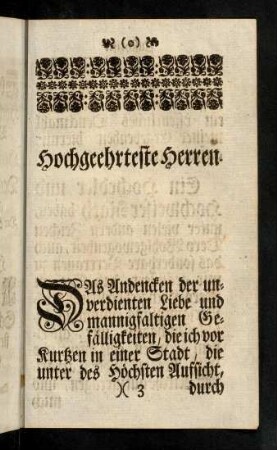 (o)
Hochgeehrteste Herren.
DAs Andencken der un-
verdienten Liebe und
mannigfaltigen Ge-
fälligkeiten, die ich vor
Kurtzen in einer Stadt, die
unter des Höchsten Aufsicht,
)( 3 durch